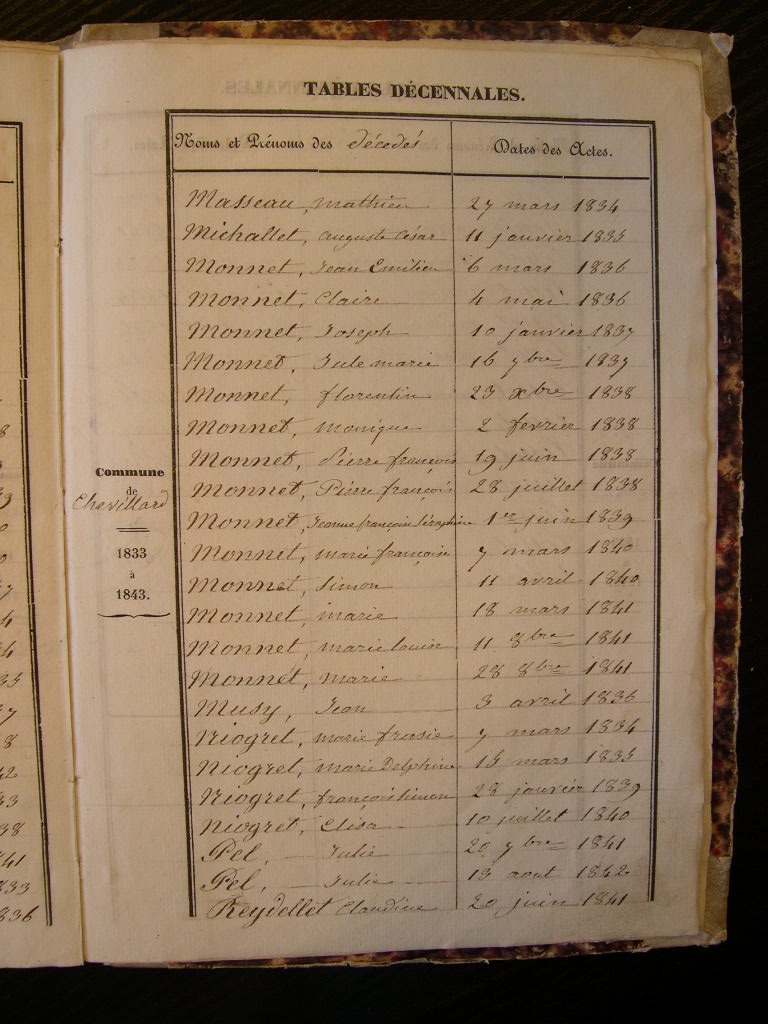 TABLES DÉCENNALES.
Noms et Prénoms des décedés Dates des Actes.
Masseau, mathieu 27 mars 1834
Michallet, auguste César 11 janvier 1835
Monnet, Jean Emilien 6 mars 1836
Monnet, Claire 4 mai 1836
Monnet, Joseph 10 janvier 1837
Monnet, Jule marie 16 7bre 1837
Monnet, florentin 23 xbre 1838
Monnet, monique 2 fevrier 1838
Monnet, Pierre françois 19 juin 1838
Monnet, Pierre françois 28 juillet 1838
Monnet, Jeanne françoise Séraphine 1er juin 1839
Monnet, marie françoise 7 mars 1840
Monnet, Simon 11 avril 1840
Monnet, marie 18 mars 1841
Monnet, marie louise 11 8bre 1841
Monnet, marie 28 8bre 1841
Musy, Jean 3 avril 1836
Niogret, marie frasie 7 mars 1834
Niogret, marie Delphine 15 mars 1835
Niogret, françois simon 28 janvier 1839
Niogret, Elisa 10 juillet 1840
Pel, Julie 20 7bre 1841
Pel, Julie 13 aout 1842
Reydellet Claudine 20 juin 1841
Commune
de
Chevillard
1833
à
1843.
8
39
0
7
4
4
35
7
8
42
43
38
841
833
836